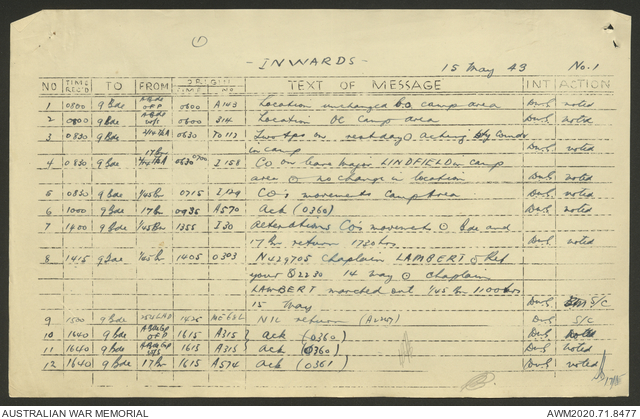 ①
- INWARDS -
15 May 43 No. 1
NO TIME REC'D TO FROM ORIGIN TIME NO TEXT OF MESSAGE INT ACTION
1 0800 9 Bde 0600 A143 Location unchanged camp area noted
2 0800 9 Bde 314 Location OC Camp area noted
3 0830 9 Bde 0630 TO 113 on rest day acting Bty Comdr
in camp noted
4 0830 9 Bde 0630 0700 I 158 CO on leave Major LINDFIELD in camp
area ⊙ no change in location noted
5 0830 9 Bde 1/45 Bn 0715 I 129 CO's movements Camp Area noted
6 1000 9 Bde 17 Bn 0935 A570 Ack (0360) noted
7 1400 9 Bde 1/45 Bn 1355 I 30 Alterations CO's movements ⊙ Bde and
17 Bn return 1730 hrs noted
8 1415 9 Bde 1/45 Bn 1405 0303 N429705 Chaplain LAMBERT S Ref
your 14 May ⊙ Chaplain
LAMBERT marched out 1/45 Bn 1100 hrs
15 May S/C
9 1500 9 Bde 1425 NIL return S/C
10 1640 9 Bde 1615 A315 ack (0360) noted
11 1640 9 Bde 1615 A315 ack (0360) noted
12 1640 9 Bde 17 Bn 1615 A574 ack (0361) noted
AUSTRALIAN WAR MEMORIAL AWM2020.71.8477